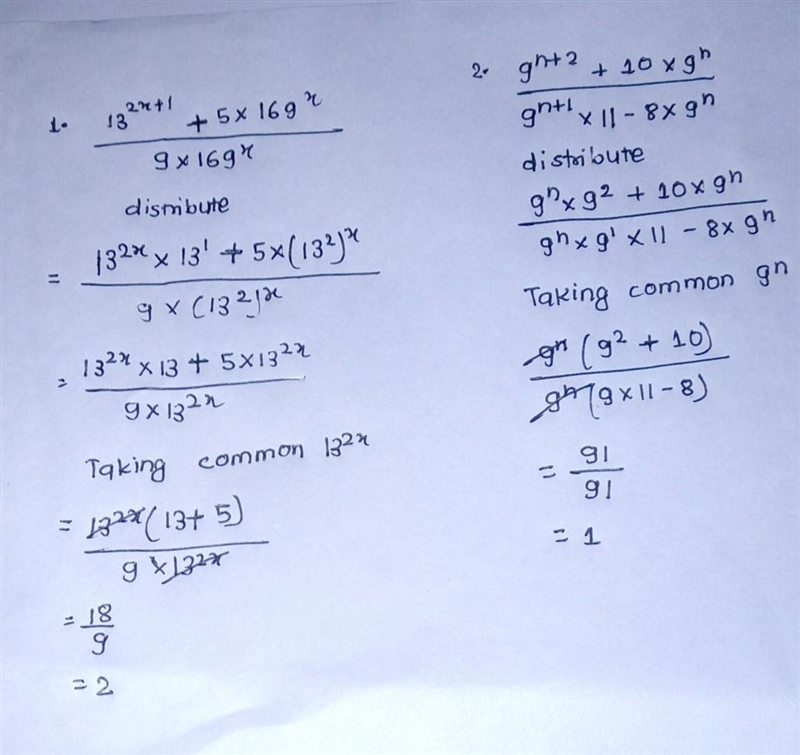 1. (13^(2x+1) + 5 × 169^x) / (9 × 169^x)
distribute
= (13^(2x) × 13^1 + 5 × (13^2)^x) / (9 × (13^2)^x)
= (13^(2x) × 13 + 5 × 13^(2x)) / (9 × 13^(2x))
Taking common 13^(2x)
= 13^(2x) (13 + 5) / (9 × 13^(2x))
= 18/9
= 2
2. (9^(n+2) + 10 × 9^n) / (9^(n+1) × 11 - 8 × 9^n)
distribute
(9^n × 9^2 + 10 × 9^n) / (9^n × 9^1 × 11 - 8 × 9^n)
Taking common 9^n
9^n (9^2 + 10) / 9^n (9 × 11 - 8)
= 91/91
= 1